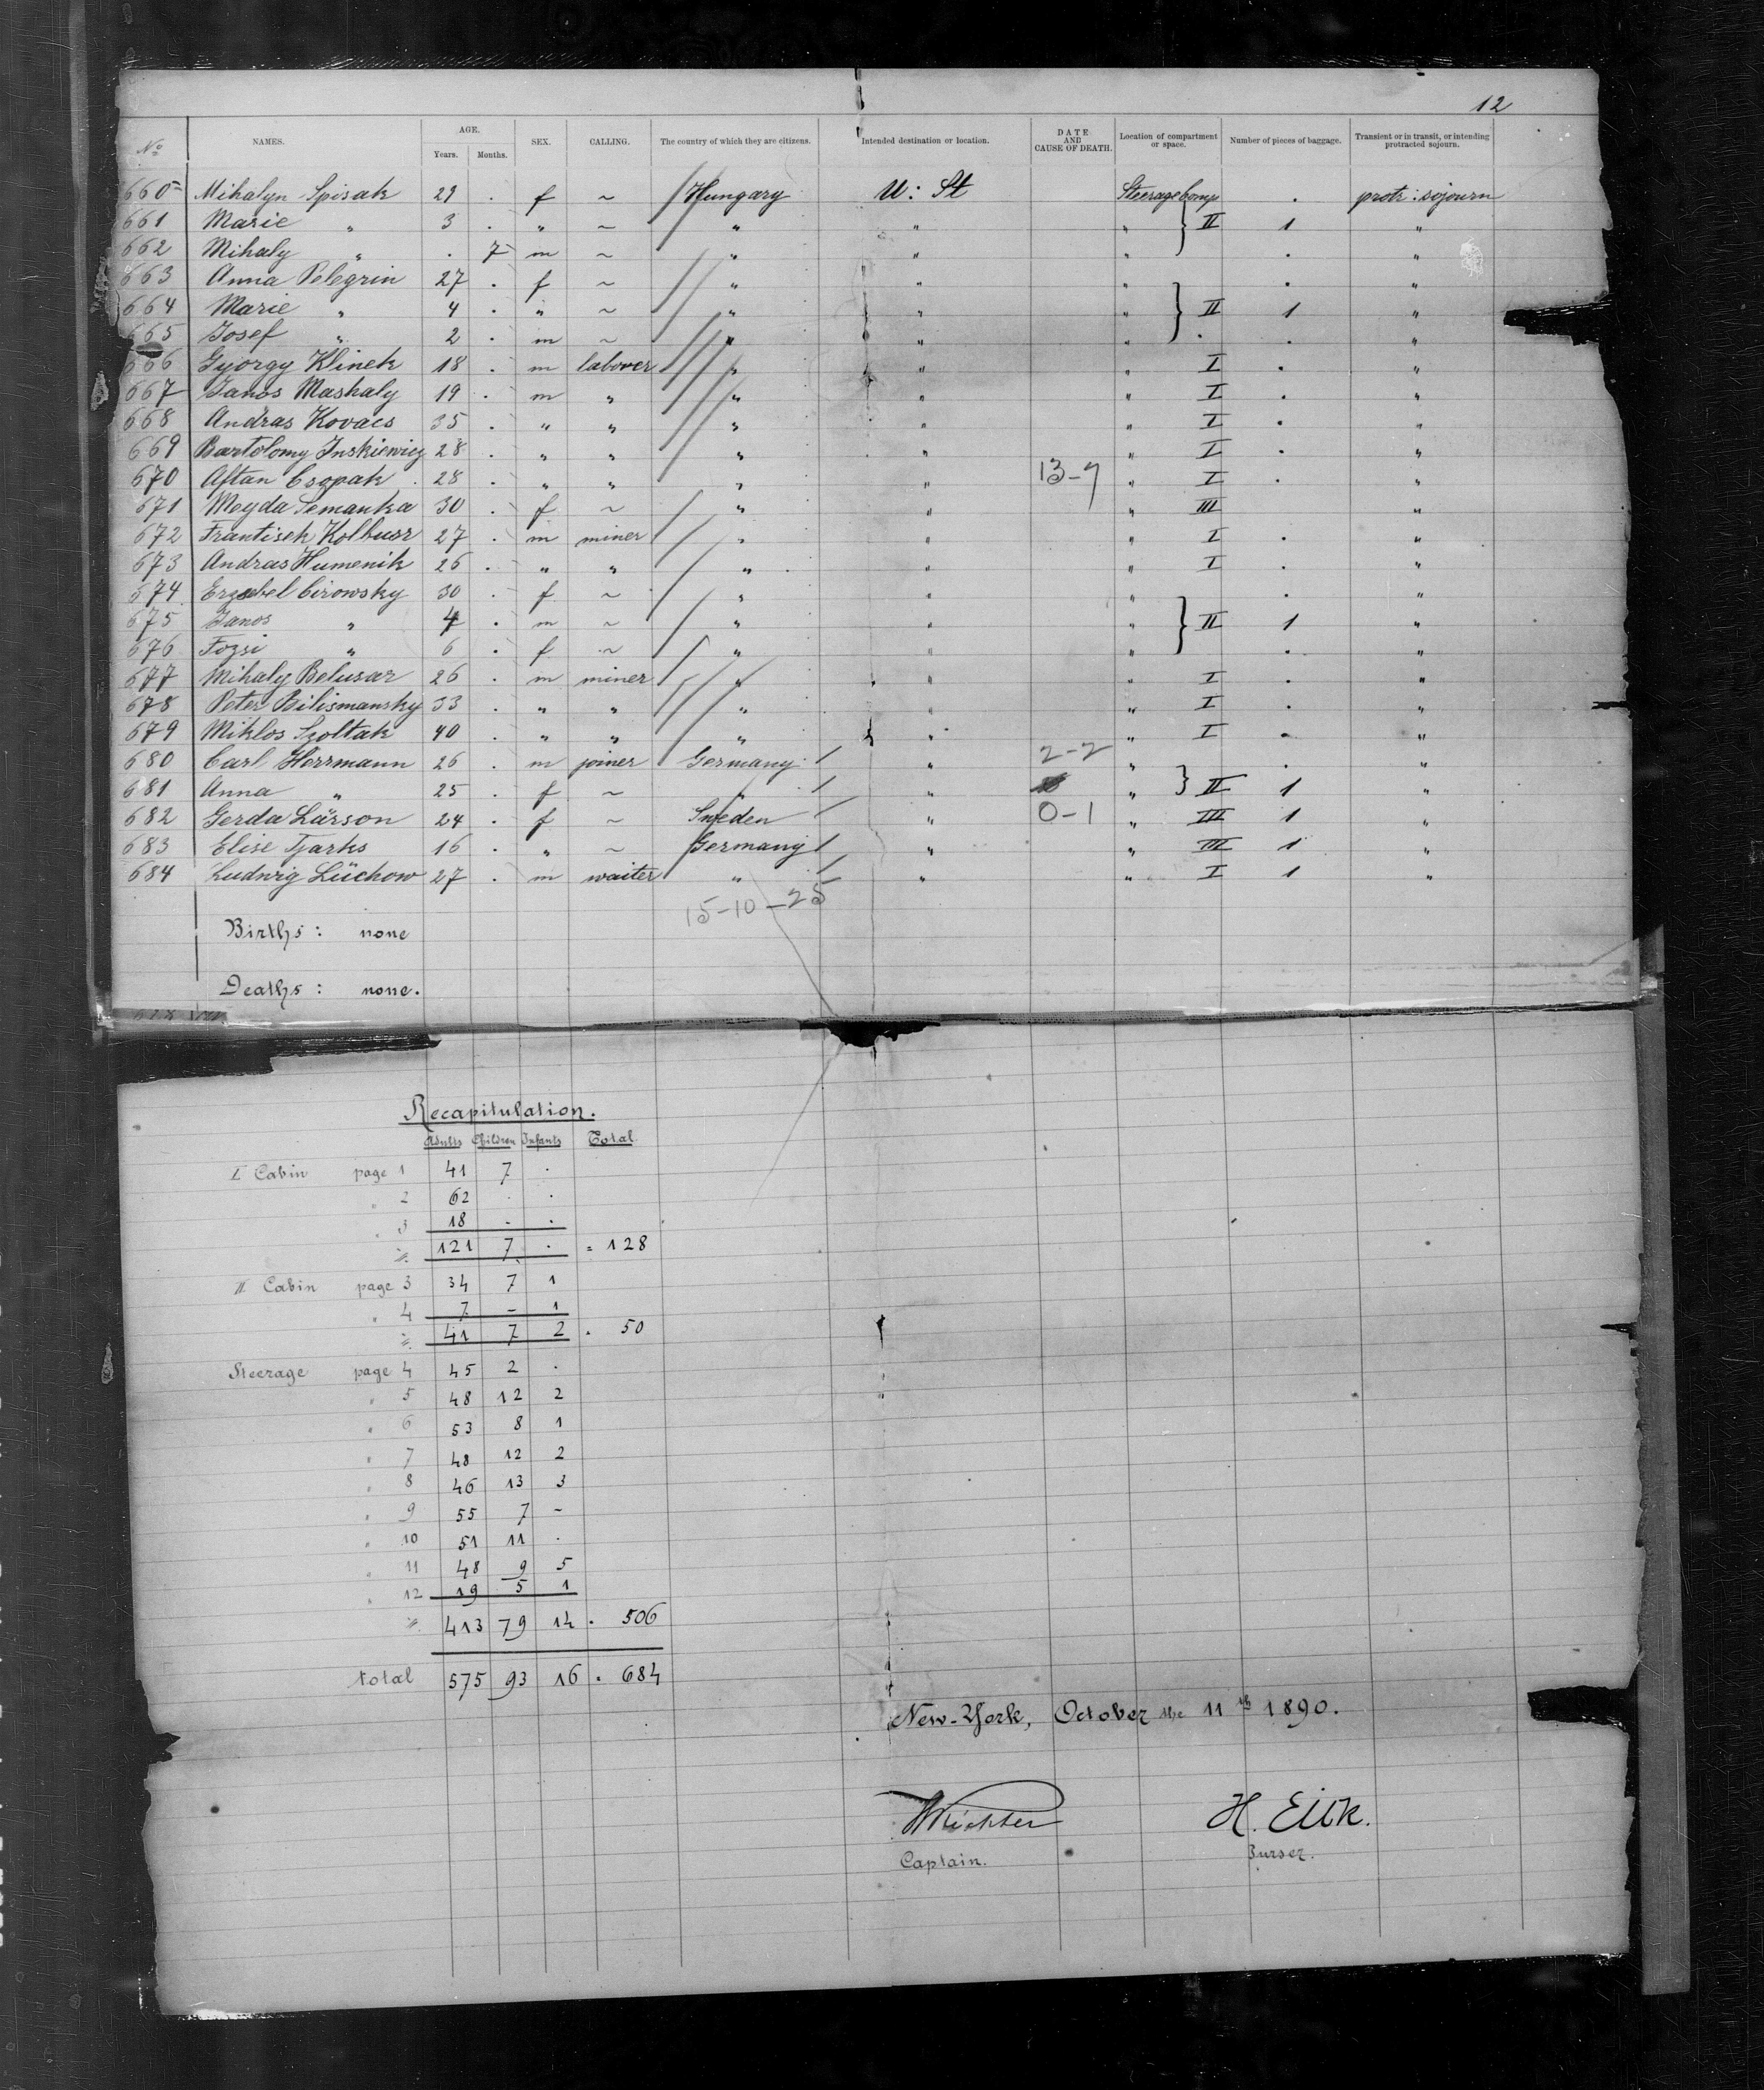 12
No NAMES. AGE. Years. Months. SEX. CALLING. The country of which they are citizens. Intended destination or location. DATE AND CAUSE OF DEATH. Location of compartment or space. Number of pieces of baggage. Transient or in transit, or intending protracted sojourn.
660 Mihalyn Spisak 29 . f ~ Hungary U: St Steerage Comp . protr: sojourn
661 Marie " 3 . " ~ " " " II 1 "
662 Mihaly " . 7 m ~ " " " . "
663 Anna Pelegrin 27 . f ~ " " " . "
664 Marie " 4 . " ~ " " " II 1 "
665 Josef " 2 . m ~ " " " . "
666 Gyorgy Klinek 18 . m laborer " " " I . "
667 Janos Mashaly 19 . m " " " " I . "
668 Andras Kovacs 35 . " " " " " I . "
669 Bartolomy Inskiewicz 28 . " " " " " I . "
670 Aftan Csopak 28 . " " " " 13-7 " I . "
671 Meyda Semanka 30 . f ~ " " " III "
672 Frantisek Kolbusz 27 . m miner " " " I . "
673 Andras Humenik 26 . " " " " " I . "
674 Erzsebel Cirowsky 30 . f ~ " " " . "
675 Janos " 4 . m ~ " " " II 1 "
676 Fozsi " 6 . f ~ " " " . "
677 Mihaly Belusar 26 . m miner " " " I . "
678 Peter Bilismansky 33 . " " " " " I . "
679 Miklos Szoltak 40 . " " " " " I . "
680 Carl Herrmann 26 . m joiner Germany " 2-2 " . "
681 Anna " 25 . f ~ " " " II 1 "
682 Gerda Lärson 24 . f ~ Sweden " 0-1 " III 1 "
683 Elise Tjarks 16 . " ~ Germany " " III 1 "
684 Ludwig Lüchow 27 . m waiter " " " I 1 "
15-10-25
Births: none
Deaths: none.
Recapitulation.
Adults Children Infants Total
I Cabin page 1 41 7 .
" 2 62 . .
" 3 18 . .
121 7 . = 128
II Cabin page 3 34 7 1
" 4 7 - 1
41 7 2 = 50
Steerage page 4 45 2 .
" 5 48 12 2
" 6 53 8 1
" 7 48 12 2
" 8 46 13 3
" 9 55 7 -
" 10 51 11 .
" 11 48 9 5
" 12 19 5 1
413 79 14 = 506
total 575 93 16 = 684
New-York, October the 11th 1890.
Richter H. Eilk.
Captain. Purser.